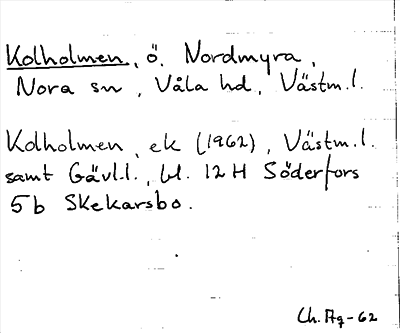 Kolholmen, ö. Nordmyra,
Nora sn, Våla hd, Västm.l.
Kolholmen, ek (1962), Västm.l.
samt Gävl.l., bl. 12 H Söderfors
5 b Skekarsbo.
Ch. Ag-62